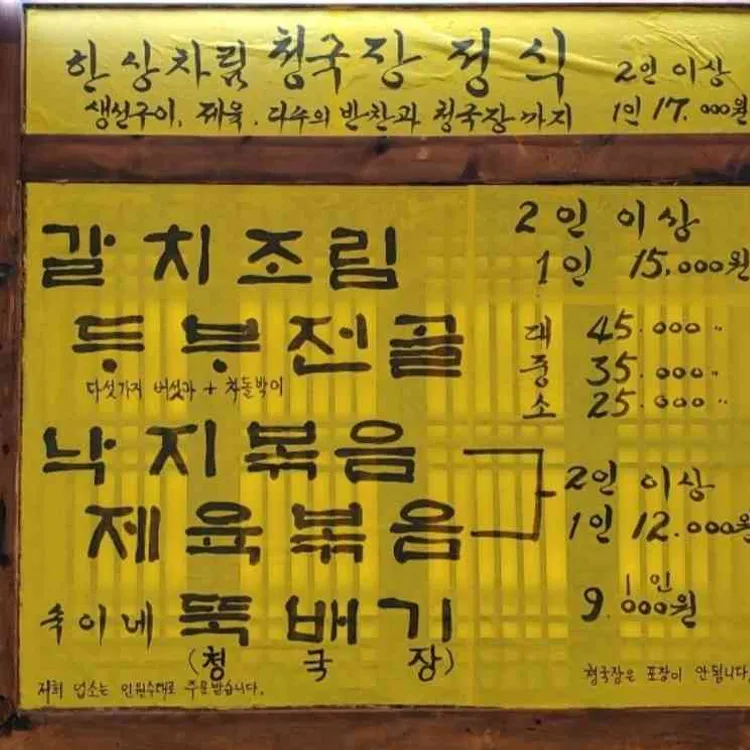 한상차림 청국장 정식 2인 이상
생선구이, 제육, 다수의 반찬과 청국장까지 1인 17.000원
갈치조림 2인 이상
1인 15.000원
두부전골 대 45.000〃
다섯가지 버섯과 + 차돌박이 중 35.000〃
소 25.000〃
낙지볶음 2인 이상
제육볶음 1인 12.000원
숙이네 뚝배기 1인 9.000원
(청국장)
저희 업소는 인원수대로 주문받습니다. 청국장은 포장이 안됩니다.